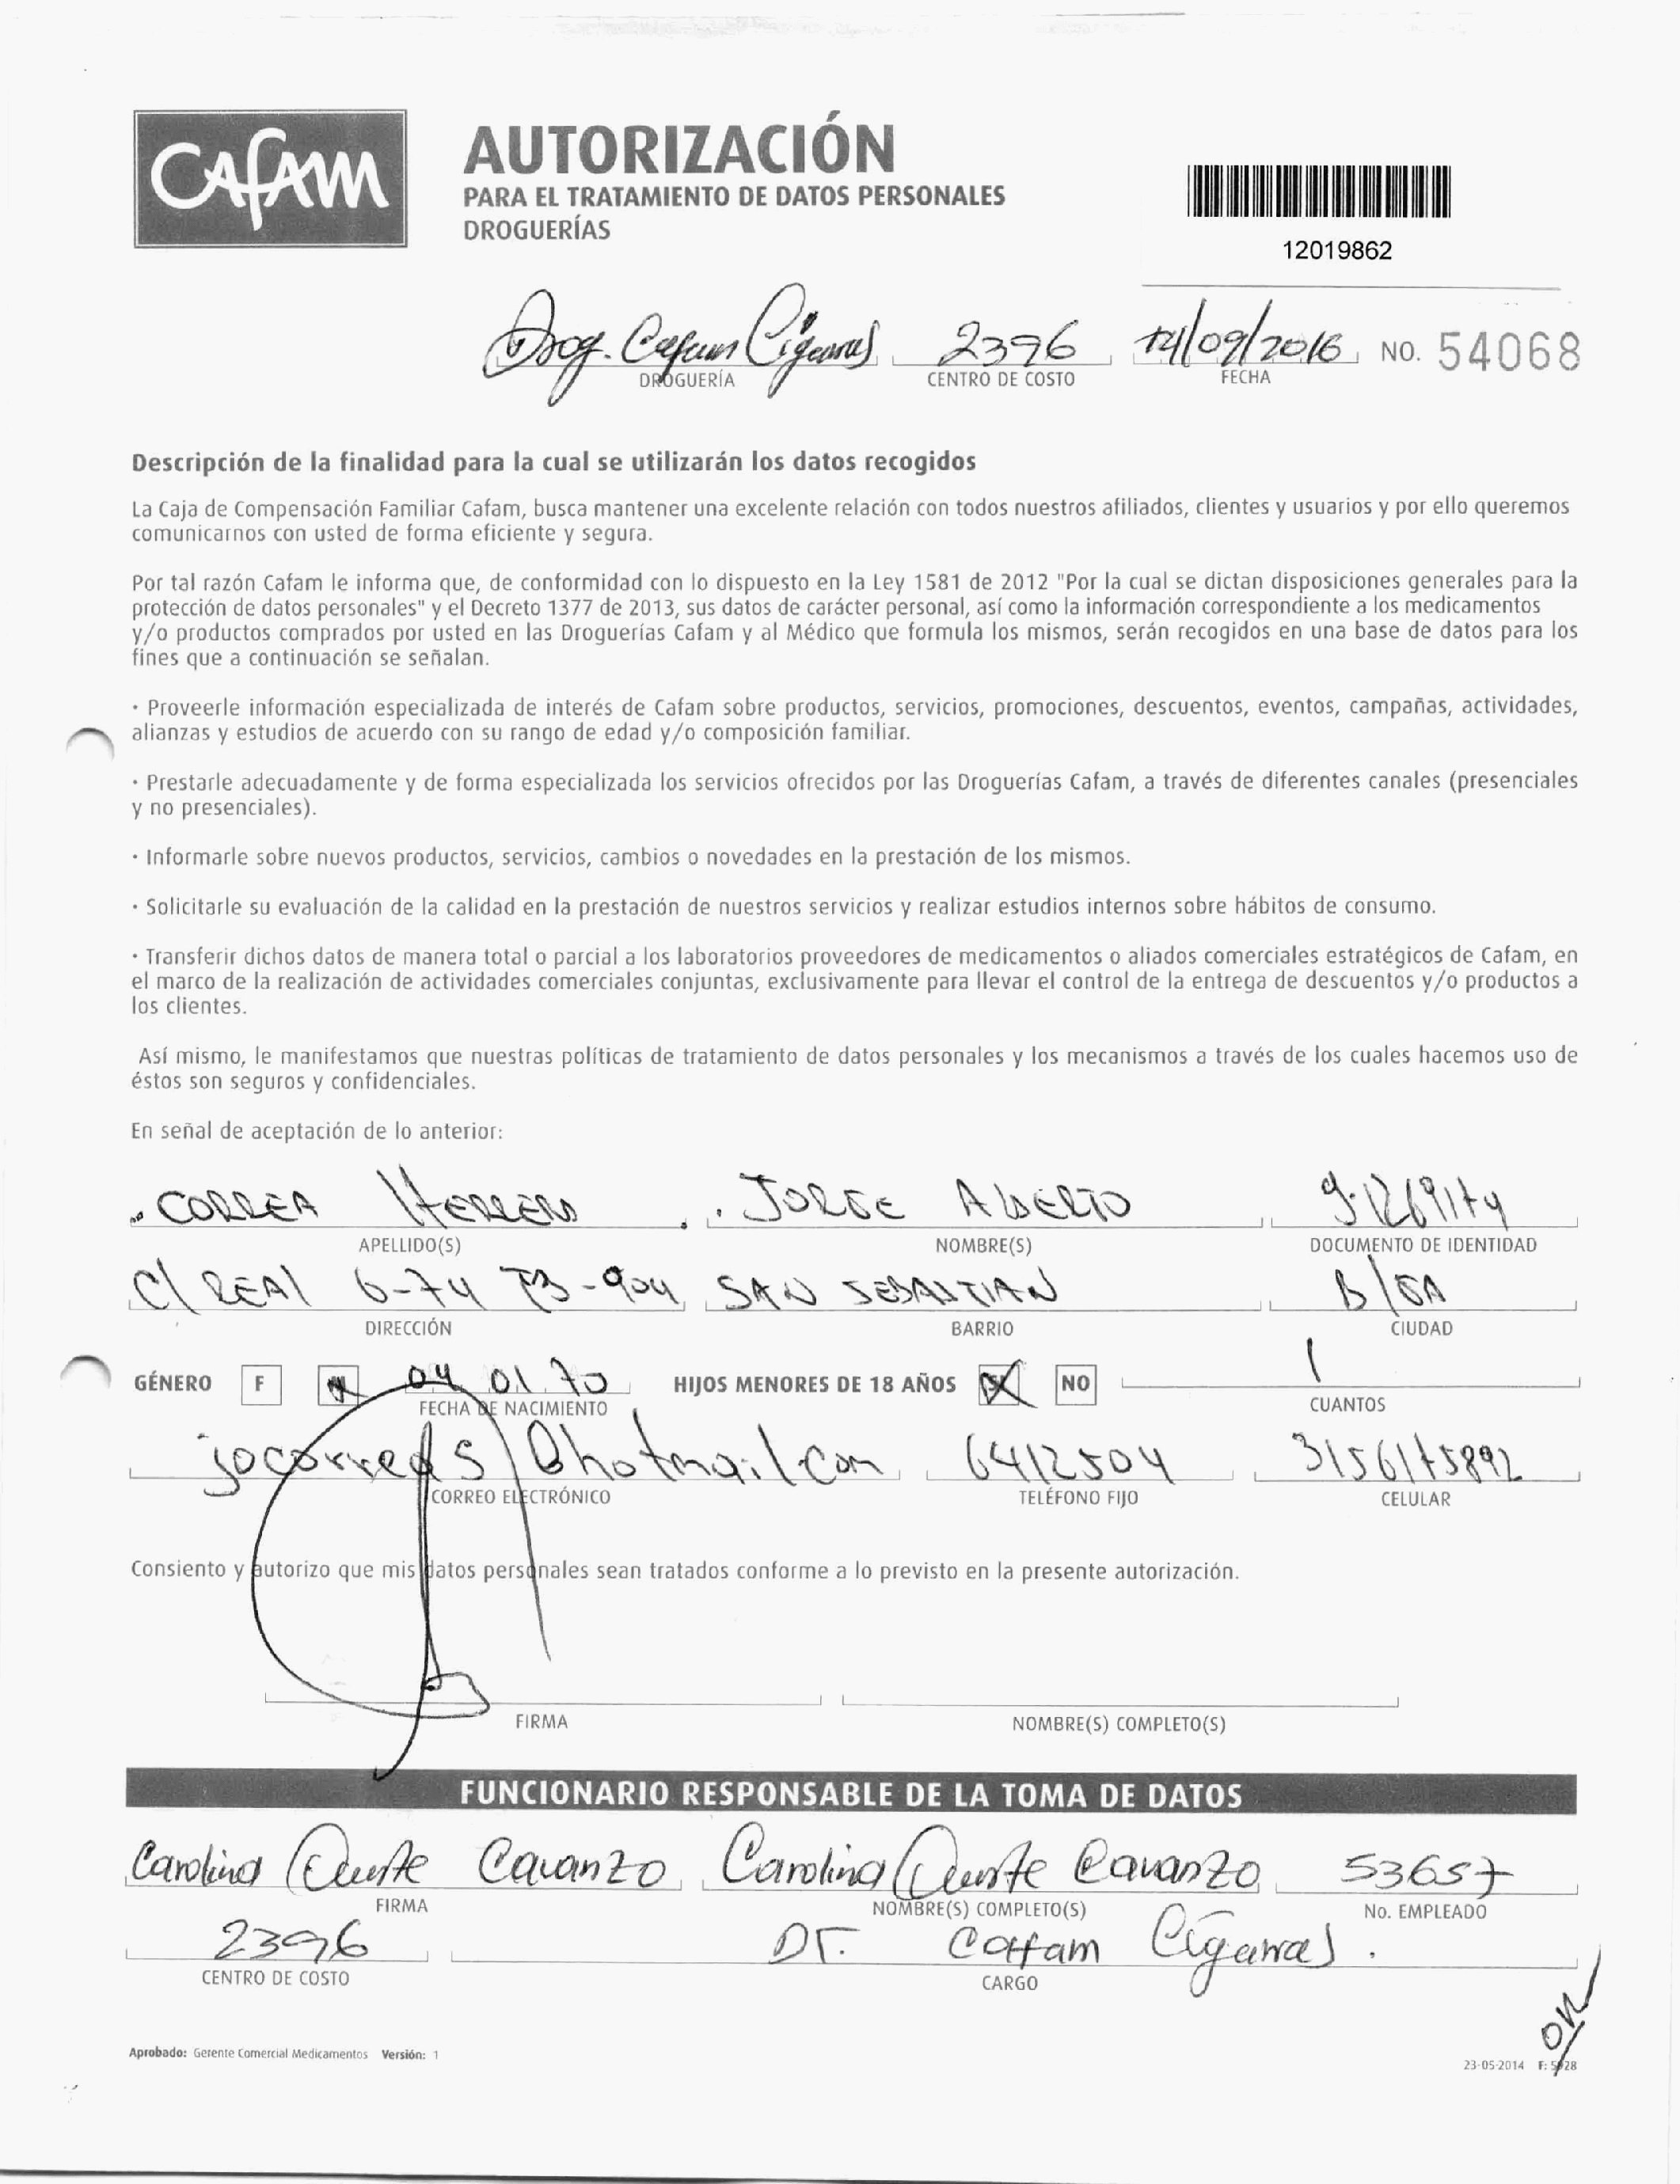 CAFAM
AUTORIZACIÓN
PARA EL TRATAMIENTO DE DATOS PERSONALES
DROGUERÍAS
12019862
Drog. Cafam 2396 14/09/2016 NO. 54068
DROGUERÍA CENTRO DE COSTO FECHA
Descripción de la finalidad para la cual se utilizarán los datos recogidos
La Caja de Compensación Familiar Cafam, busca mantener una excelente relación con todos nuestros afiliados, clientes y usuarios y por ello queremos
comunicarnos con usted de forma eficiente y segura.
Por tal razón Cafam le informa que, de conformidad con lo dispuesto en la Ley 1581 de 2012 "Por la cual se dictan disposiciones generales para la
protección de datos personales" y el Decreto 1377 de 2013, sus datos de carácter personal, así como la información correspondiente a los medicamentos
y/o productos comprados por usted en las Droguerías Cafam y al Médico que formula los mismos, serán recogidos en una base de datos para los
fines que a continuación se señalan.
· Proveerle información especializada de interés de Cafam sobre productos, servicios, promociones, descuentos, eventos, campañas, actividades,
alianzas y estudios de acuerdo con su rango de edad y/o composición familiar.
· Prestarle adecuadamente y de forma especializada los servicios ofrecidos por las Droguerías Cafam, a través de diferentes canales (presenciales
y no presenciales).
· Informarle sobre nuevos productos, servicios, cambios o novedades en la prestación de los mismos.
· Solicitarle su evaluación de la calidad en la prestación de nuestros servicios y realizar estudios internos sobre hábitos de consumo.
· Transferir dichos datos de manera total o parcial a los laboratorios proveedores de medicamentos o aliados comerciales estratégicos de Cafam, en
el marco de la realización de actividades comerciales conjuntas, exclusivamente para llevar el control de la entrega de descuentos y/o productos a
los clientes.
Así mismo, le manifestamos que nuestras políticas de tratamiento de datos personales y los mecanismos a través de los cuales hacemos uso de
éstos son seguros y confidenciales.
En señal de aceptación de lo anterior:
CORREA JORGE
APELLIDO(S) NOMBRE(S) DOCUMENTO DE IDENTIDAD
C/ REAL 6-74 T3-904 SAN SEBASTIAN B/GA
DIRECCIÓN BARRIO CIUDAD
GÉNERO F M 04 01 70 HIJOS MENORES DE 18 AÑOS SI NO 1
FECHA DE NACIMIENTO CUANTOS
6412504
CORREO ELECTRÓNICO TELÉFONO FIJO CELULAR
Consiento y autorizo que mis datos personales sean tratados conforme a lo previsto en la presente autorización.
FIRMA NOMBRE(S) COMPLETO(S)
FUNCIONARIO RESPONSABLE DE LA TOMA DE DATOS
Carolina Cavanzo Carolina Cavanzo 53657
FIRMA NOMBRE(S) COMPLETO(S) No. EMPLEADO
2396 Dr. Caffam
CENTRO DE COSTO CARGO
OK
Aprobado: Gerente Comercial Medicamentos Versión: 1
23-05-2014 F: